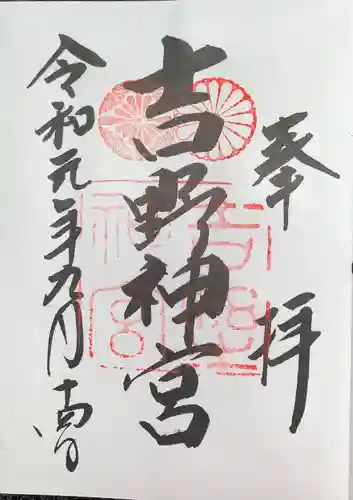 奉拝
吉野神宮
令和元年九月十四日
吉野
神宮